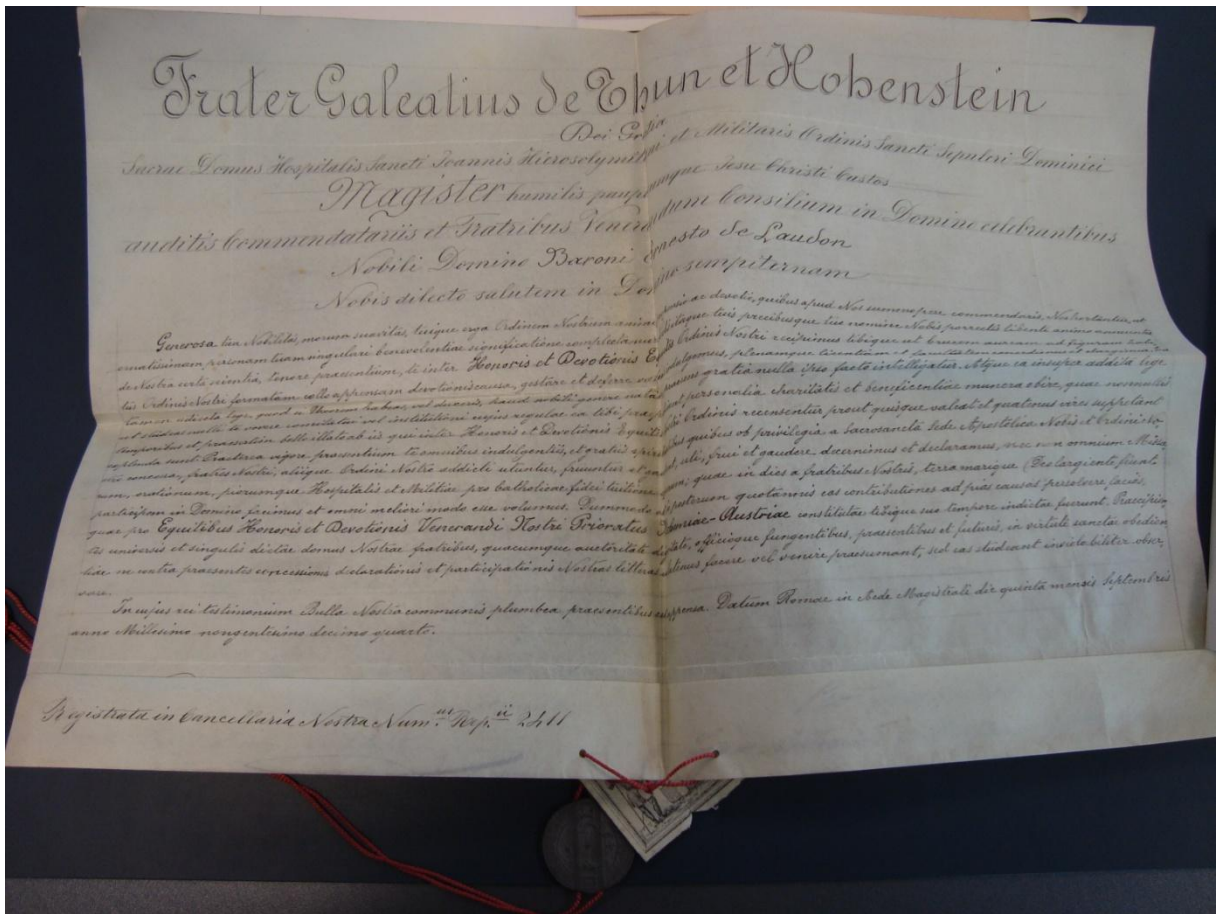 Frater Galeatius de Thun et Hohenstein
Dei Gratia
Sacrae Domus Hospitalis Sancti Joannis Hierosolymitani et Militaris Ordinis Sancti Sepulcri Dominici
Magister humilis pauperumque Jesu Christi Custos
auditis Commendatariis et Fratribus Venerandum Consilium in Domino celebrantibus
Nobili Domino Baroni Ernesto de Laudon
Nobis dilecto salutem in Domino sempiternam
Generosa tua Nobilitas, morum suavitas, tuique erga Ordinem Nostrum ac devotio, quibus apud Nos summopere commendaris, Nos hortantur, ut
personam tuam singulari benevolentiae significatione complectamur tuis precibusque tuo nomine Nobis porrectis libente animo
de Nostra certa scientia, tenore praesentium, te inter Honoris et Devotionis Ordinis Nostri recipimus tibique ut crucem auream ad figuram
lus Ordinis Nostri formatam, collo appensam devotionis causa, gestare et deferre indulgemus, plenamque licentiam et facultatem
tamen adiecta lege, quod si Uxorem habeas, vel duxeris, haud nobili genere gratia nulla ipso facto intelligatur. Atque ea insuper addita lege
ut studeas personalia charitatis et beneficentiae munera obire, quae
Ordinis recensentur prout quisque valeat et quatenus vires suppetant
explenda sunt Praeterea vigore praesentium te omnibus indulgentiis, et gratiis quibus ob privilegia a Sacrosancta Sede Apostolica Nobis et Ordini No-
stro concessa, fratres Nostri, aliique Ordini Nostro addicti utuntur, fruuntur et uti, frui et gaudere, decernimus et declaramus, nec non omnium Missa-
rum, orationum, piorumque Hospitalis et Militiae pro Catholicae fidei tuitione quae in dies a fratribus Nostris, terra marique (Deo largiente) fiunt
participem in Domino facimus et omni meliori modo esse volumus. Dummodo posterum quotannis eas contributiones ad pias causas persolvere facies,
quae pro Equitibus Honoris et Devotionis Venerandi Nostri Prioratus Bohemiae-Austriae constitutae tibique suo tempore indictae fuerunt. Praecipien-
tes universis et singulis dictae domus Nostrae fratribus, quacumque auctoritate officioque fungentibus, praesentibus et futuris, in virtute sanctae obedien
tiae ne contra praesentes concessionis declarationis et participationis Nostras litteras facere vel venire praesumant, sed eas studeant inviolabiliter obser-
vare.
In cujus rei testimonium Bulla Nostra communis plumbea praesentibus est appensa. Datum Romae in Sede Magistrali die quinta mensis Septembris
anno Millesimo nongentesimo decimo quarto.
Registrata in Cancellaria Nostra Num. 2411